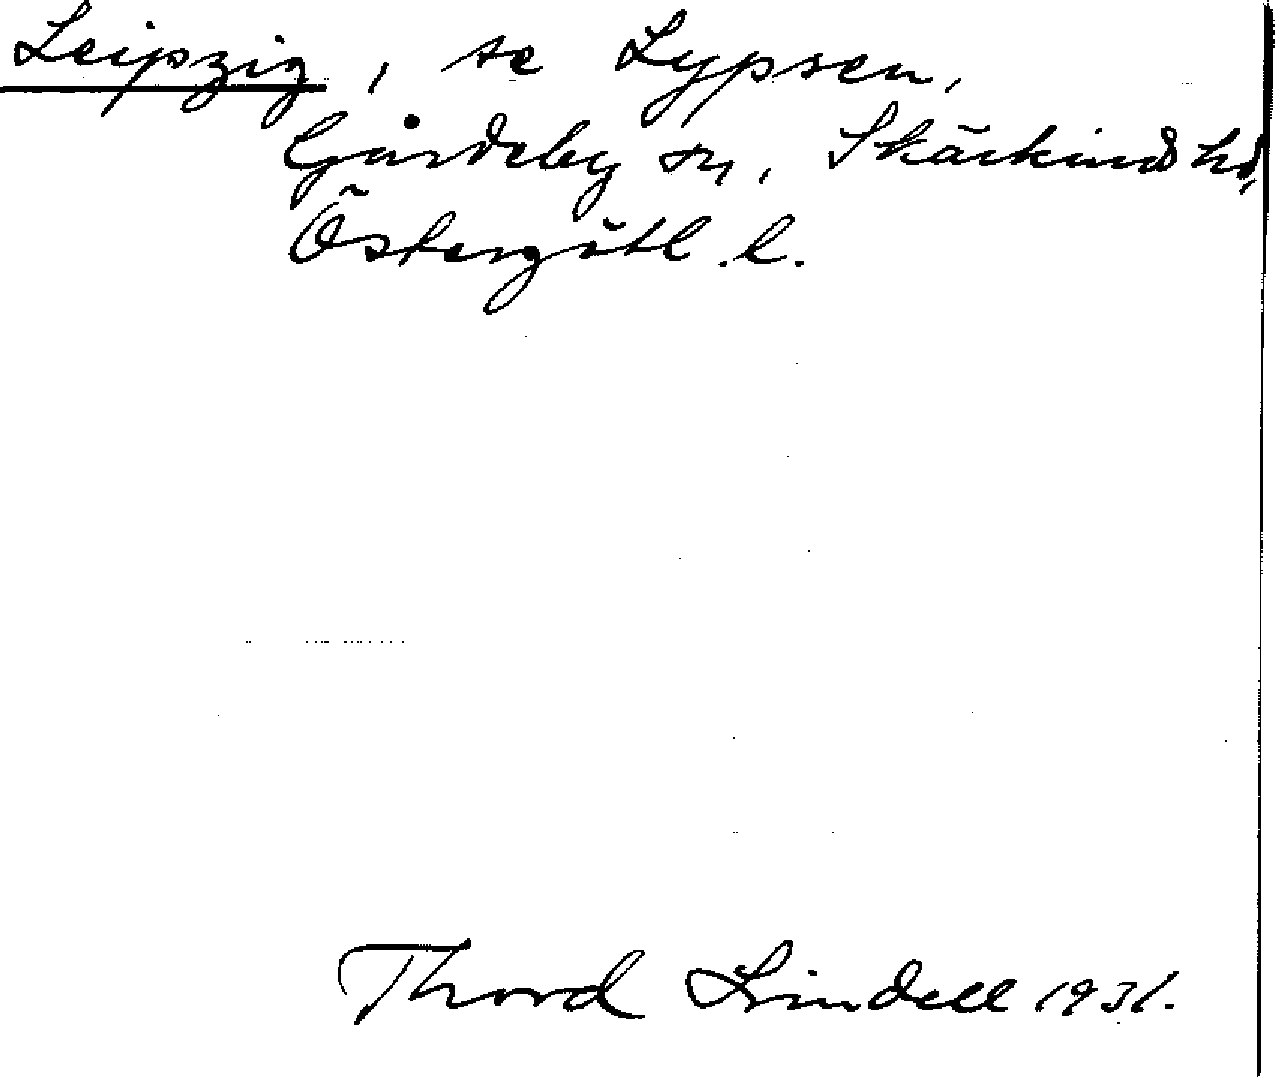 Leipzig, se Lypsen,
Gårdeby sn, Skärkinds hd,
Östergötl. l.
Thord Lindell 1931.